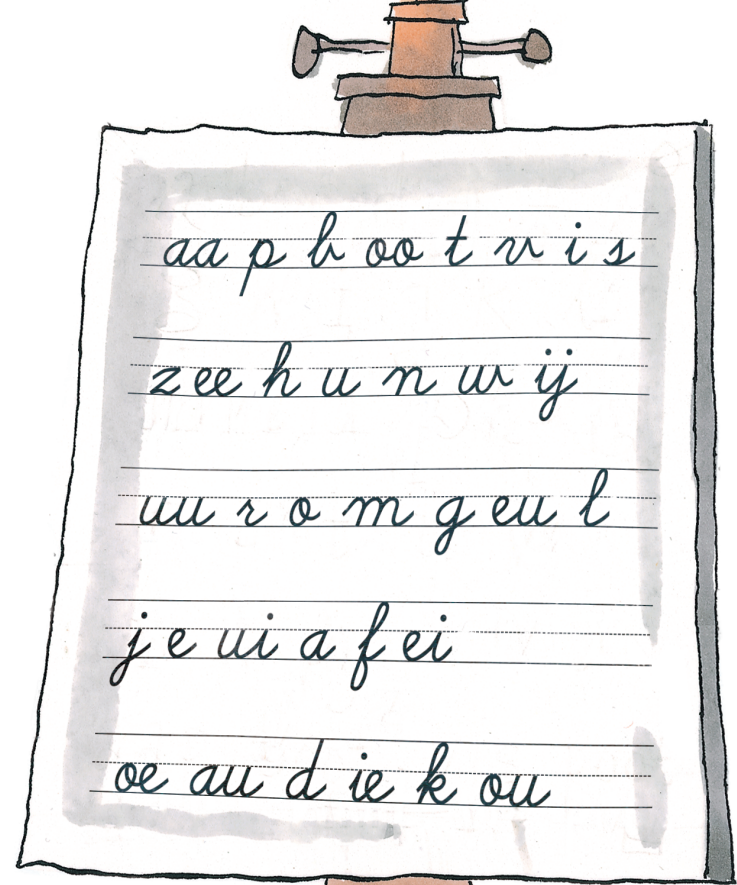 aa p b oo t v i s
z ee h u n w ij
uu r o m g eu l
j e ui a f ei
oe au d ie k ou